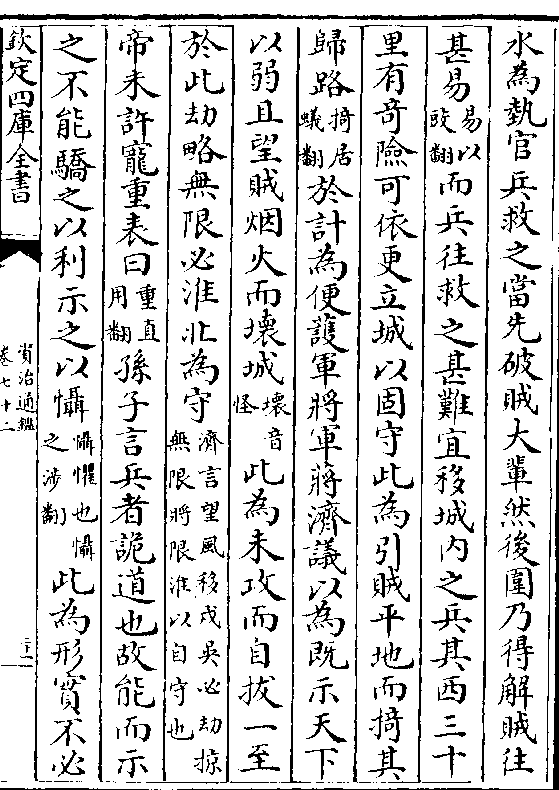 水為埶官兵救之當先破賊大輩然後圍乃得解賊往
甚易易以豉翻而兵往救之甚難宜移城内之兵其西三十
里有奇險可依更立城以固守此為引賊平地而掎其
歸路掎居蟻翻於計為便護軍將軍蔣濟議以為既示天下
以弱且望賊烟火而壞城壞音怪此為未攻而自拔一至
於此劫略無限必淮北為守濟言望風移戍吳必劫掠無限將限淮以自守也
帝未許寵重表曰重直用翻孫子言兵者詭道也故能而示
之不能驕之以利示之以懾懾懼也懾之涉翻此為形實不必
欽定四庫全書
資治通鑑
卷七十二